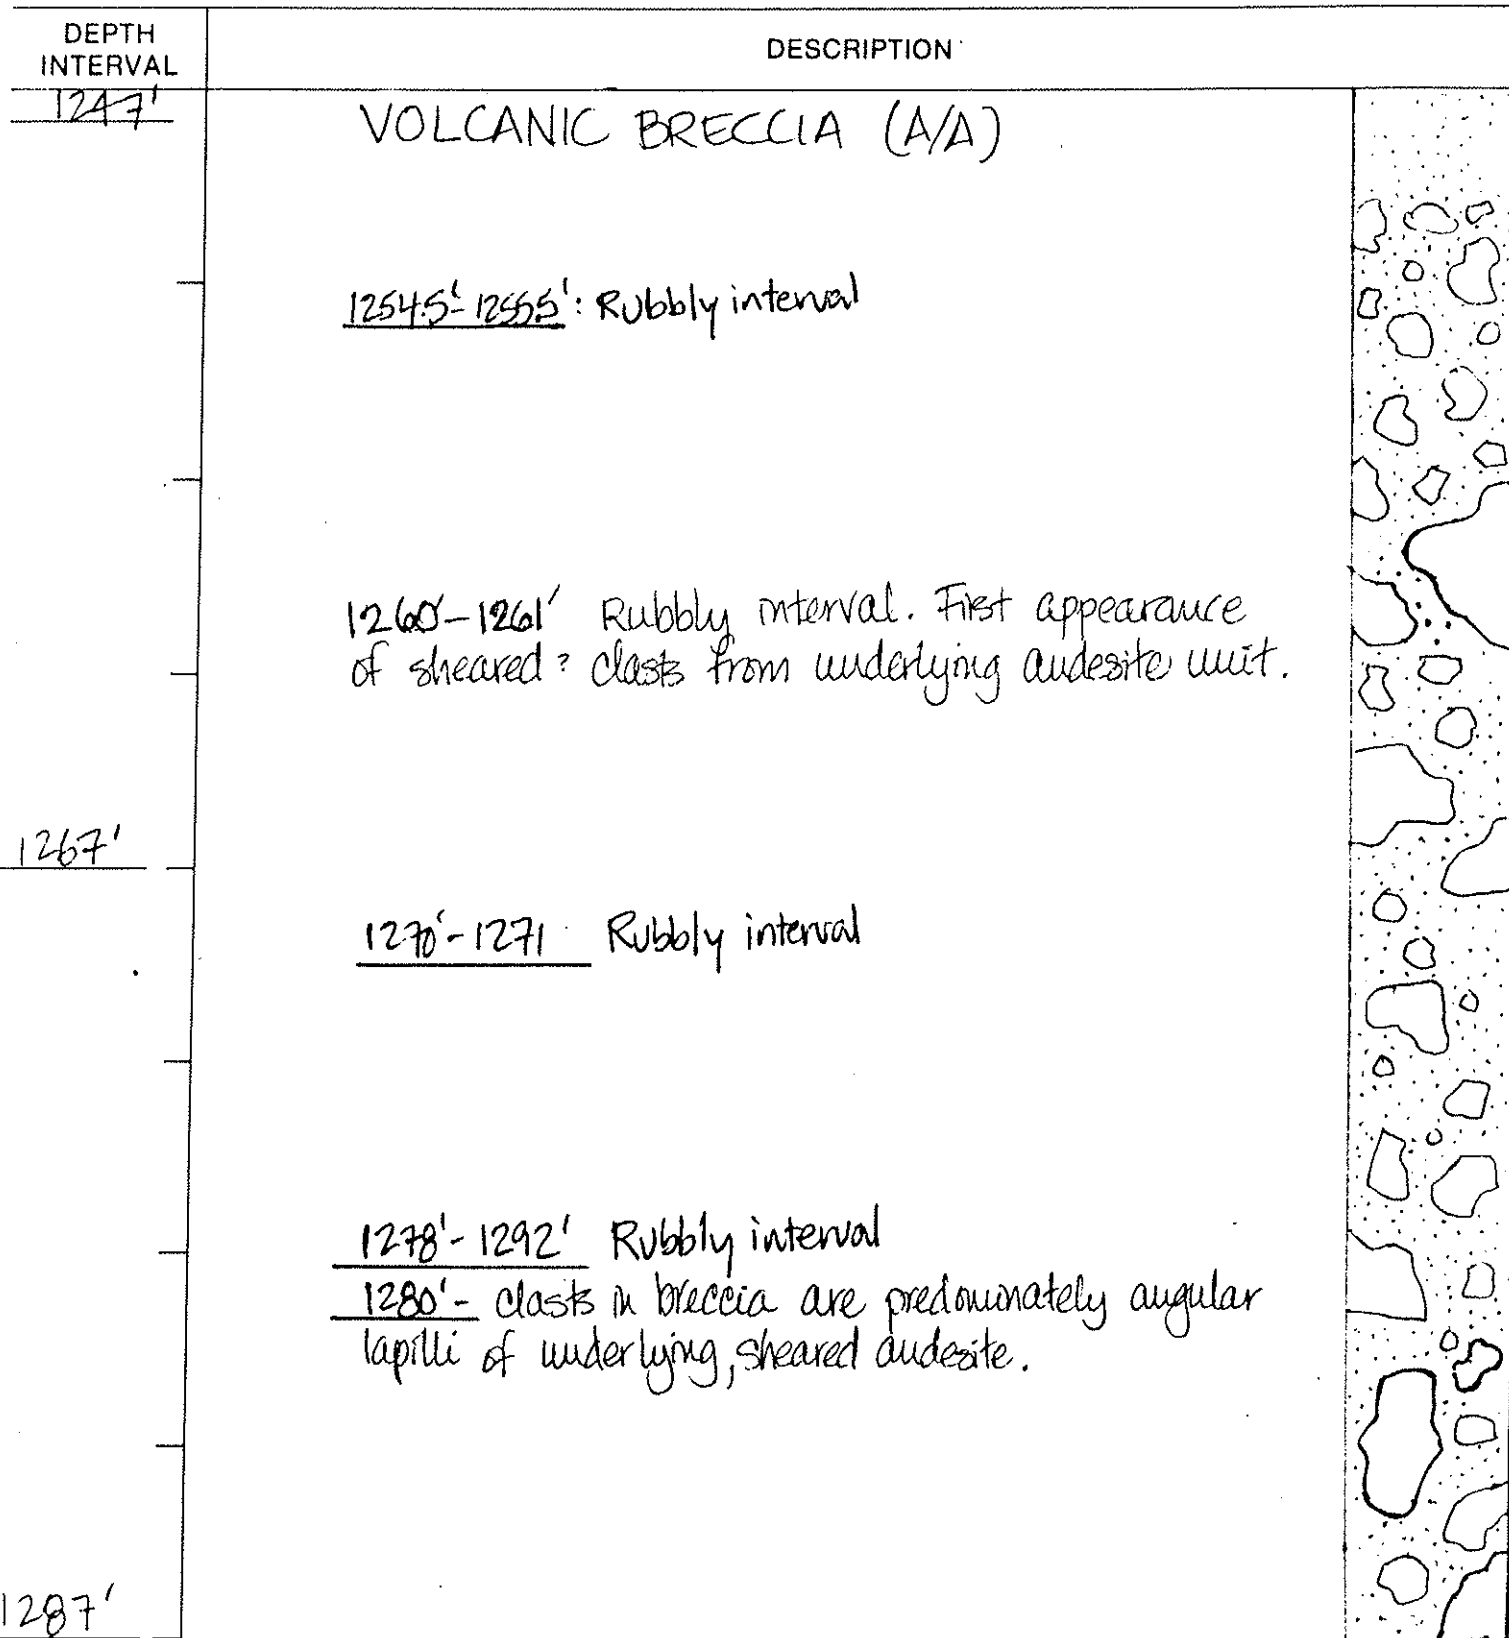 DEPTH
INTERVAL
DESCRIPTION
1247'
VOLCANIC BRECCIA (A/A)
1254.5'-1255.5': Rubbly interval
1260'-1261' Rubbly interval. First appearance
of sheared? clasts from underlying andesite unit.
1267'
1270'-1271 Rubbly interval
1278'-1292' Rubbly interval
1280'- clasts in breccia are predominately angular
lapilli of underlying, sheared andesite.
1287'